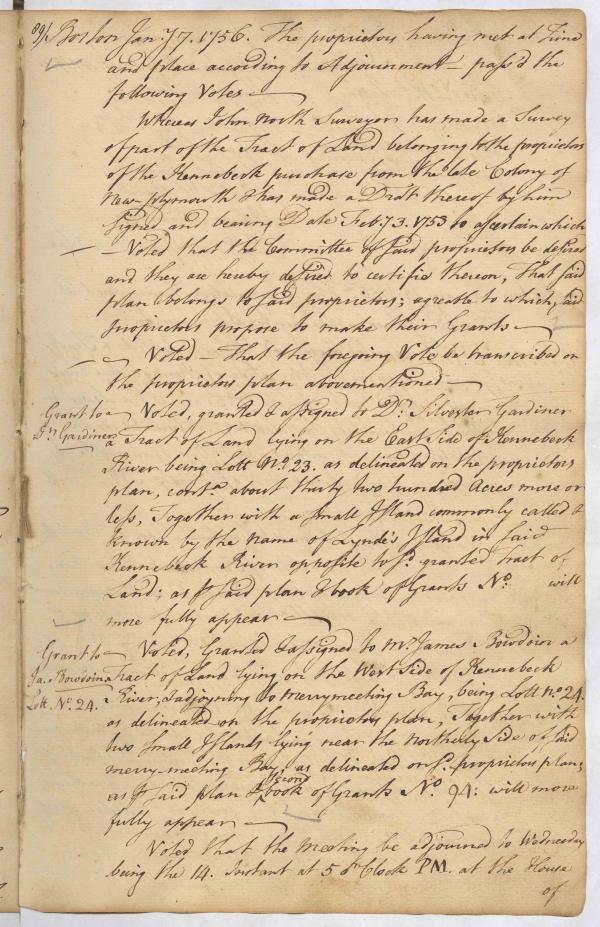 89/ Boston Jan:y 7. 1756. The proprietors having met at Time
and place according to Adjournment – pass'd the
following Votes —
Whereas John North Surveyor has made a Survey
of part of the Tract of Land belonging to the proprietors
of the Kennebeck purchase from the late Colony of
New plymouth & has made a Draft thereof by him
Signed and bearing Date Feb:y 3. 1753 to ascertain which
– Voted that the Committee of said proprietors be desired
and they are hereby desired to certifie thereon, That said
plan belongs to said proprietors; agreable to which, said
proprietors propose to make their Grants —
Voted – That the foregoing Vote be transcribed on
the proprietors plan abovementioned —
Grant to Dr Gardiner
Voted, granted & assigned to Dr. Silvester Gardiner
a Tract of Land lying on the East Side of Kennebeck
River being Lott No. 23. as delineated on the proprietors
plan, conta about thirty two hundred Acres more or
less, Together with a small Island commonly called &
known by the name of Lynde's Island in said
Kennebeck River opposite to sd. granted Tract of
Land; as ye said plan & book of Grants No. will
more fully appear —
Grant to Ja. Bowdoin
Lott No. 24.
Voted, Granted & assigned to Mr. James Bowdoin a
Tract of Land lying on the West Side of Kennebeck
River, & adjoyning to merrymeeting Bay, being Lott no. 24.
as delineated on the proprietors plan, Together with
two small Islands lying near the Northerly Side of said
merry-meeting Bay, as delineated on sd. proprietors plan;
as ye said plan & second book of Grants No. 94: will more
fully appear —
Voted that the meeting be adjourned to Wednesday
being the 14. Instant at 5 o'Clock PM. at the House
of